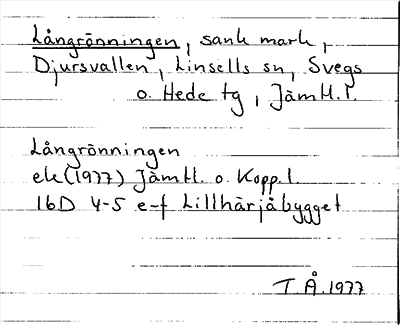 Långrönningen, sank mark,
Djursvallen, Linsells sn, Svegs
o. Hede tg, Jämtl. l.
Långrönningen
ek (1977) Jämtl. o. Kopp. l.
16D 4-5 e-f Lillhärjåbygget
T Å. 1977